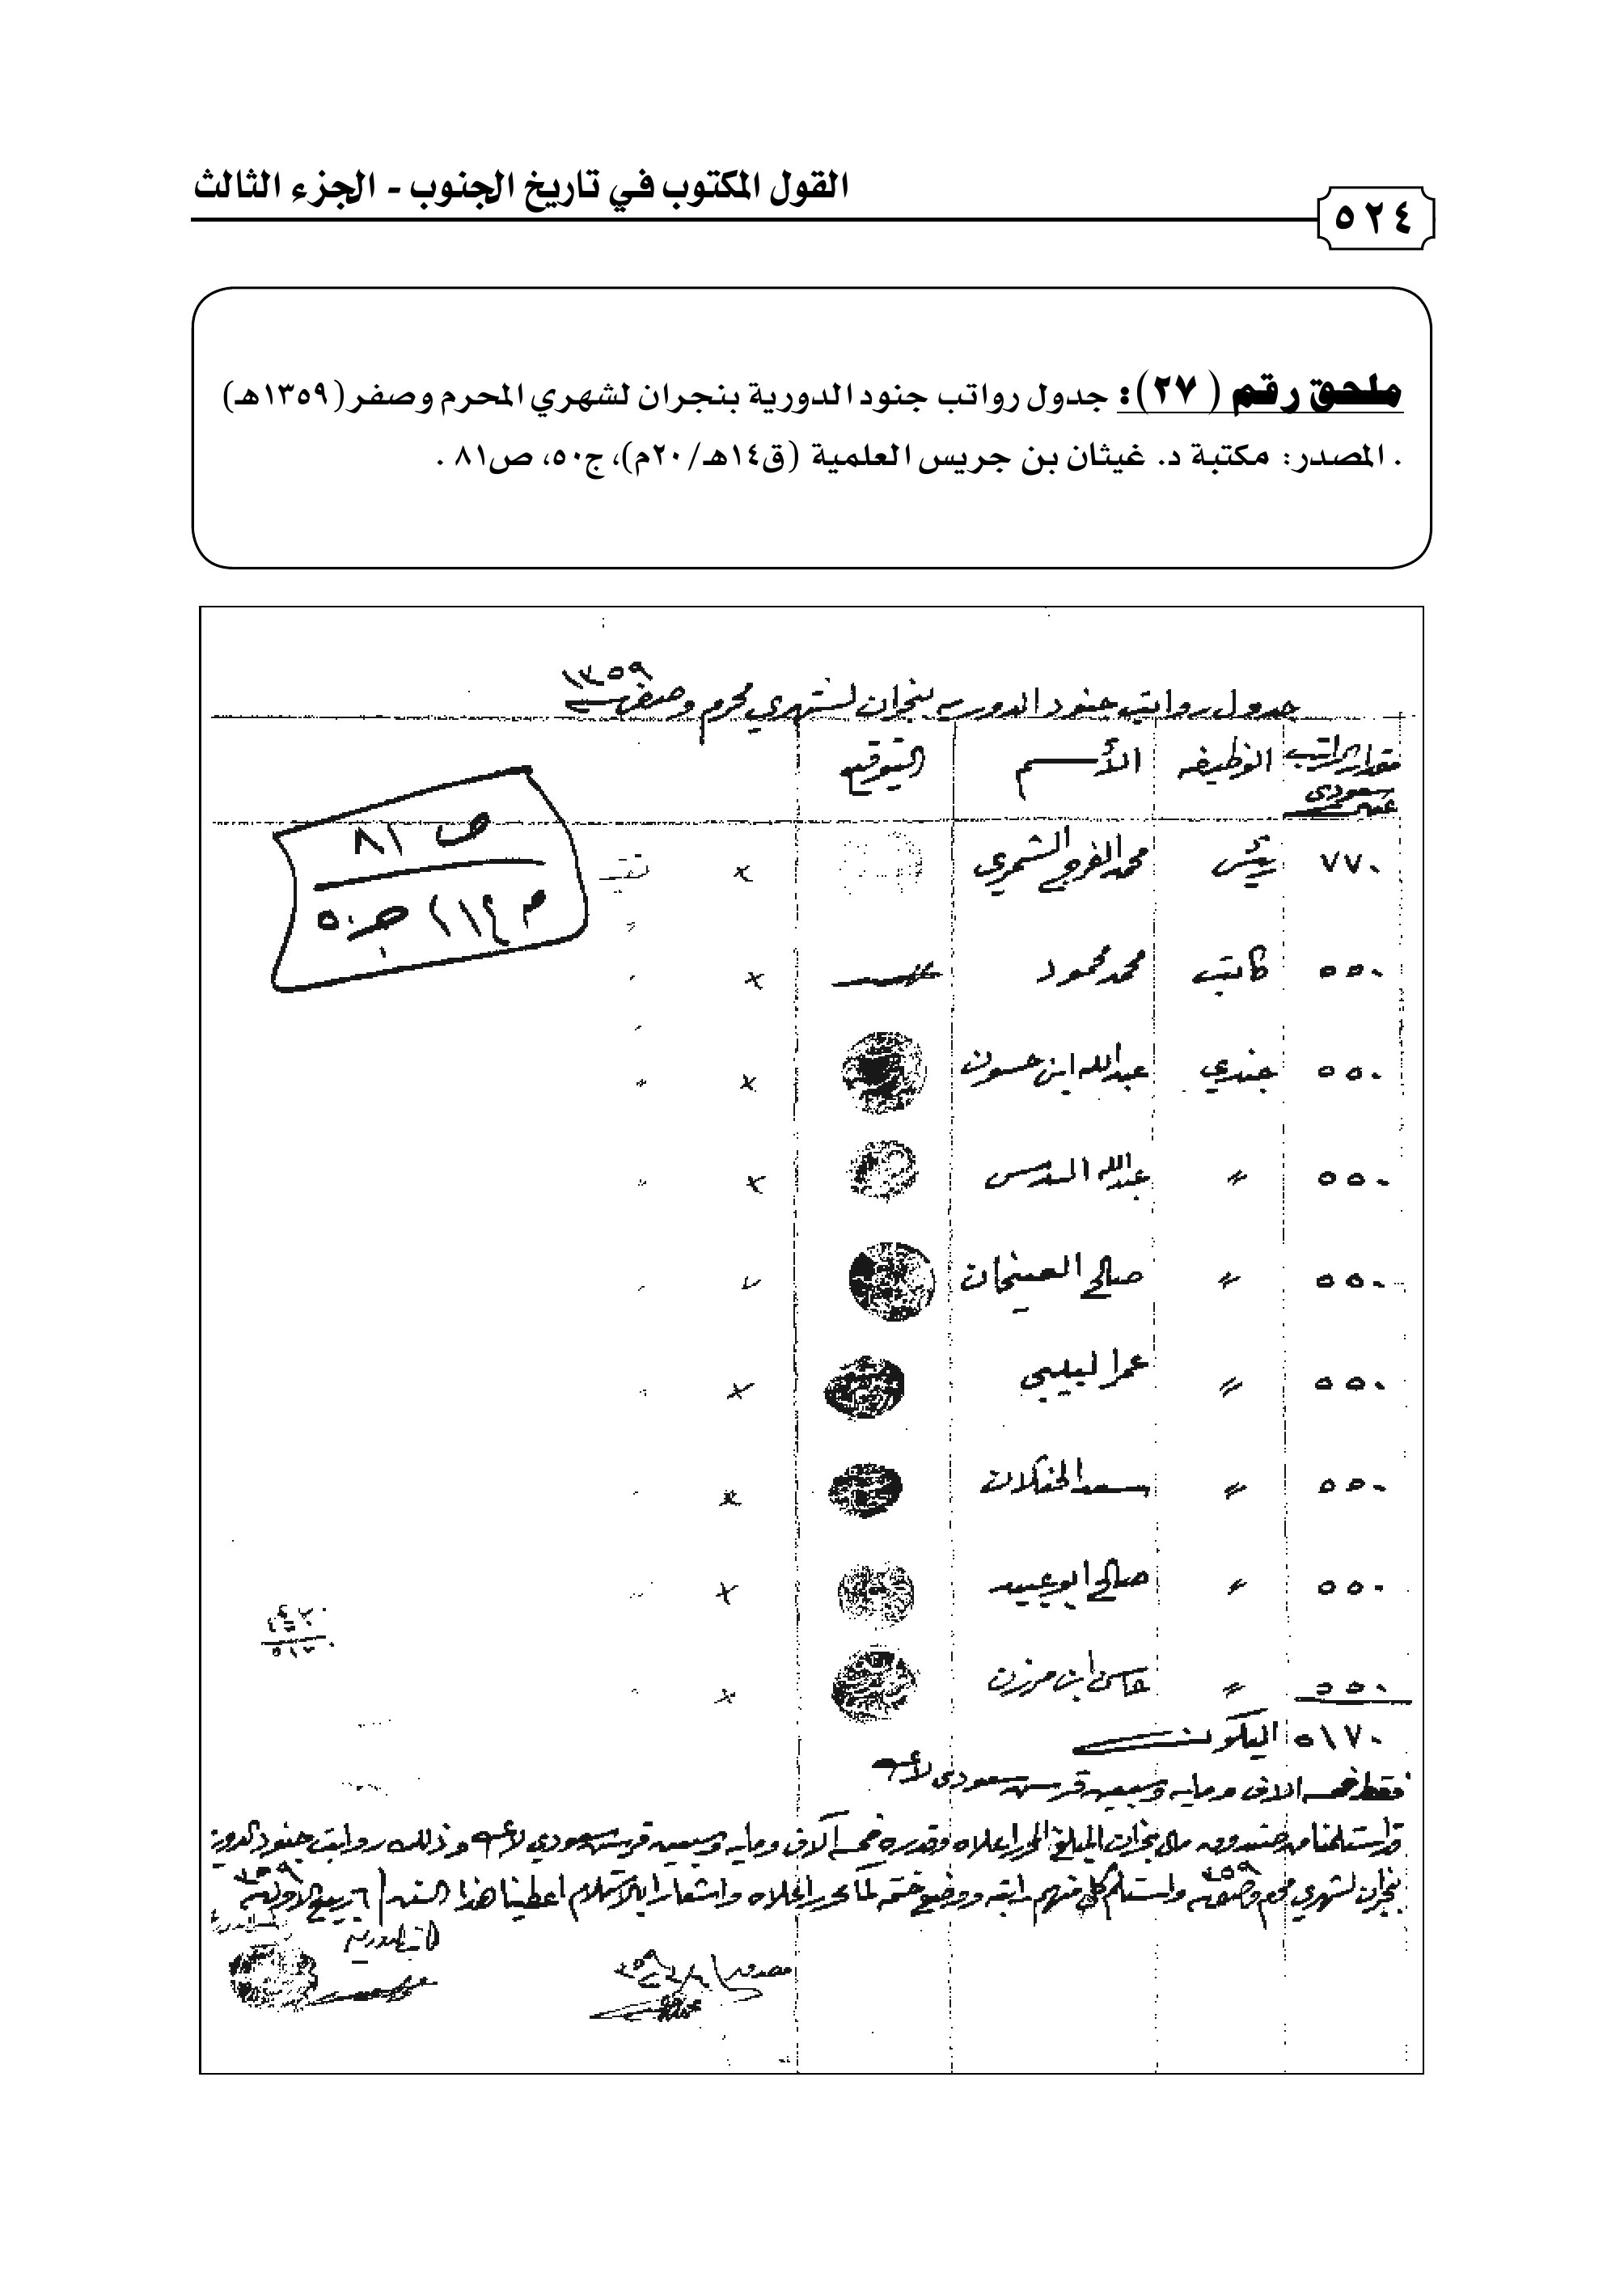 القول المكتوب في تاريخ الجنوب - الجزء الثالث
٥٢٤
ملحق رقم (٢٧): جدول رواتب جنود الدورية بنجران لشهري المحرم وصفر (١٣٥٩هـ)
. المصدر: مكتبة د. غيثان بن جريس العلمية (ق١٤هـ/٢٠م)، ج٥٠، ص٨١ .
جدول رواتب جنود الدوريه بنجران لشهري محرم وصفر ١٣٥٩
مقدار الراتب الوظيفه الأسم التوقيع
سعودي
ص ٨١
ج٥٠
٧٧٠ رئيس محمد الفرج الشمري ×
٥٥٠ كاتب محمد محمود ×
٥٥٠ جندي عبدالله ابن حسون ×
٥٥٠ 〃 عبدالله ×
٥٥٠ 〃 صالح
٥٥٠ 〃 ×
٥٥٠ 〃 سعد ×
٥٥٠ 〃 صالح ابو عبيد ×
٥٥٠ 〃 ابن ×
٥١٧٠ اليكون
فقط خمسة الاف ومايه وسبعين قرش سعودي لاغير
قد استلمنا من صندوق مال نجران المبلغ المحرر اعلاه وقدره خمسة آلاف ومايه وسبعين قرش سعودي لاغير وذلك رواتب جنود الدورية
بنجران لشهري محرم وصفر ٣٥٩ واستلم كل منهم راتبه ووضع ختمه لما تحرر اعلاه واشعارا بالاستلام اعطينا هذا السند ٦ ربيع الاول ٣٥٩
كاتب الدوريه